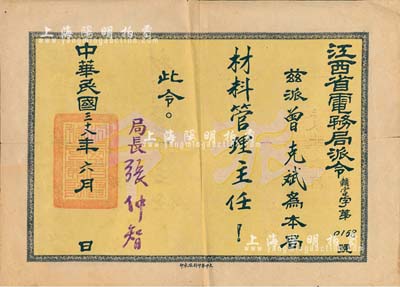 江西省電務局派令
字第0159號
茲派曾克斌為本局
材料管理主任！
此令。
局長張仲智
中華民國三十八年六月 日
上海陽明拍賣
上海陽明拍賣
上海陽明拍賣